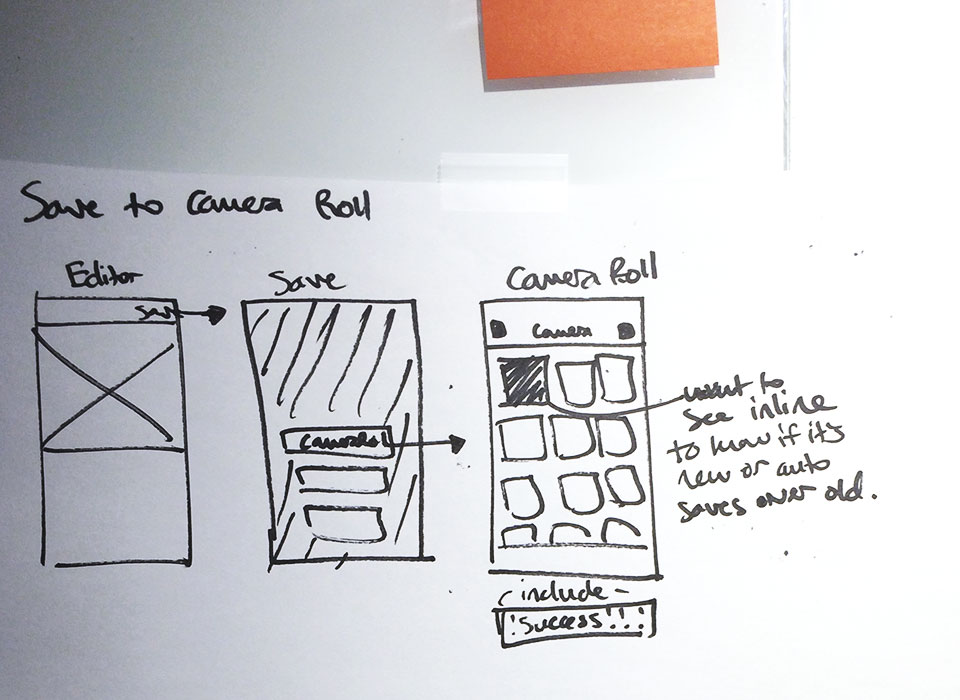 Save to Camera Roll
Editor
Save
Save
Camera Roll
CameraRoll
Camera
want to
see inline
to know if it's
new or auto
saves over old.
- include -
'Success'!!!